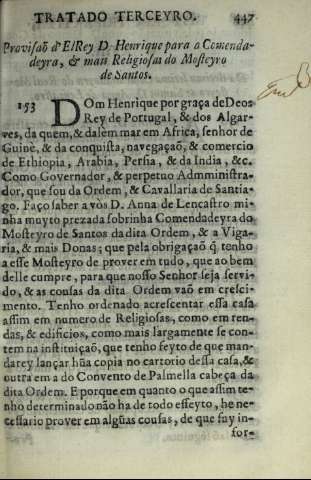 TRATADO TERCEYRO. 447
Provisaõ d'ElRey D. Henrique para a Comenda-
deyra, & mais Religiosas do Mosteyro
de Santos.
153 DOm Henrique por graça de Deos
Rey de Portugal, & dos Algar-
ves, da quem, & dalèm mar em Africa, senhor de
Guinè, & da conquista, navegaçaõ, & comercio
de Ethiopia, Arabia, Persia, & da India, &c.
Como Governador, & perpetuo Admministra-
dor, que sou da Ordem, & Cavallaria de Santia-
go. Faço saber a vòs D. Anna de Lencastro mi-
nha muyto prezada sobrinha Comendadeyra do
Mosteyro de Santos da dita Ordem, & a Viga-
ria, & mais Donas; que pela obrigaçaõ q̃ tenho
a esse Mosteyro de prover em tudo, que ao bem
delle cumpre, para que nosso Senhor seja servi-
do, & as cousas da dita Ordem vaõ em cresci-
mento. Tenho ordenado acrescentar essa casa
assim em numero de Religiosas, como em ren-
das, & edificios, como mais largamente se con-
tem na instituiçaõ, que tenho feyto de que man-
darey lançar hũa copia no cartorio dessa casa, &
outra em a do Convento de Palmella cabeça da
dita Ordem. E porque em quanto o que assim te-
nho determinado não ha de todo esseyto, he ne-
cessario prover em algũas cousas, de que fuy in-
for-